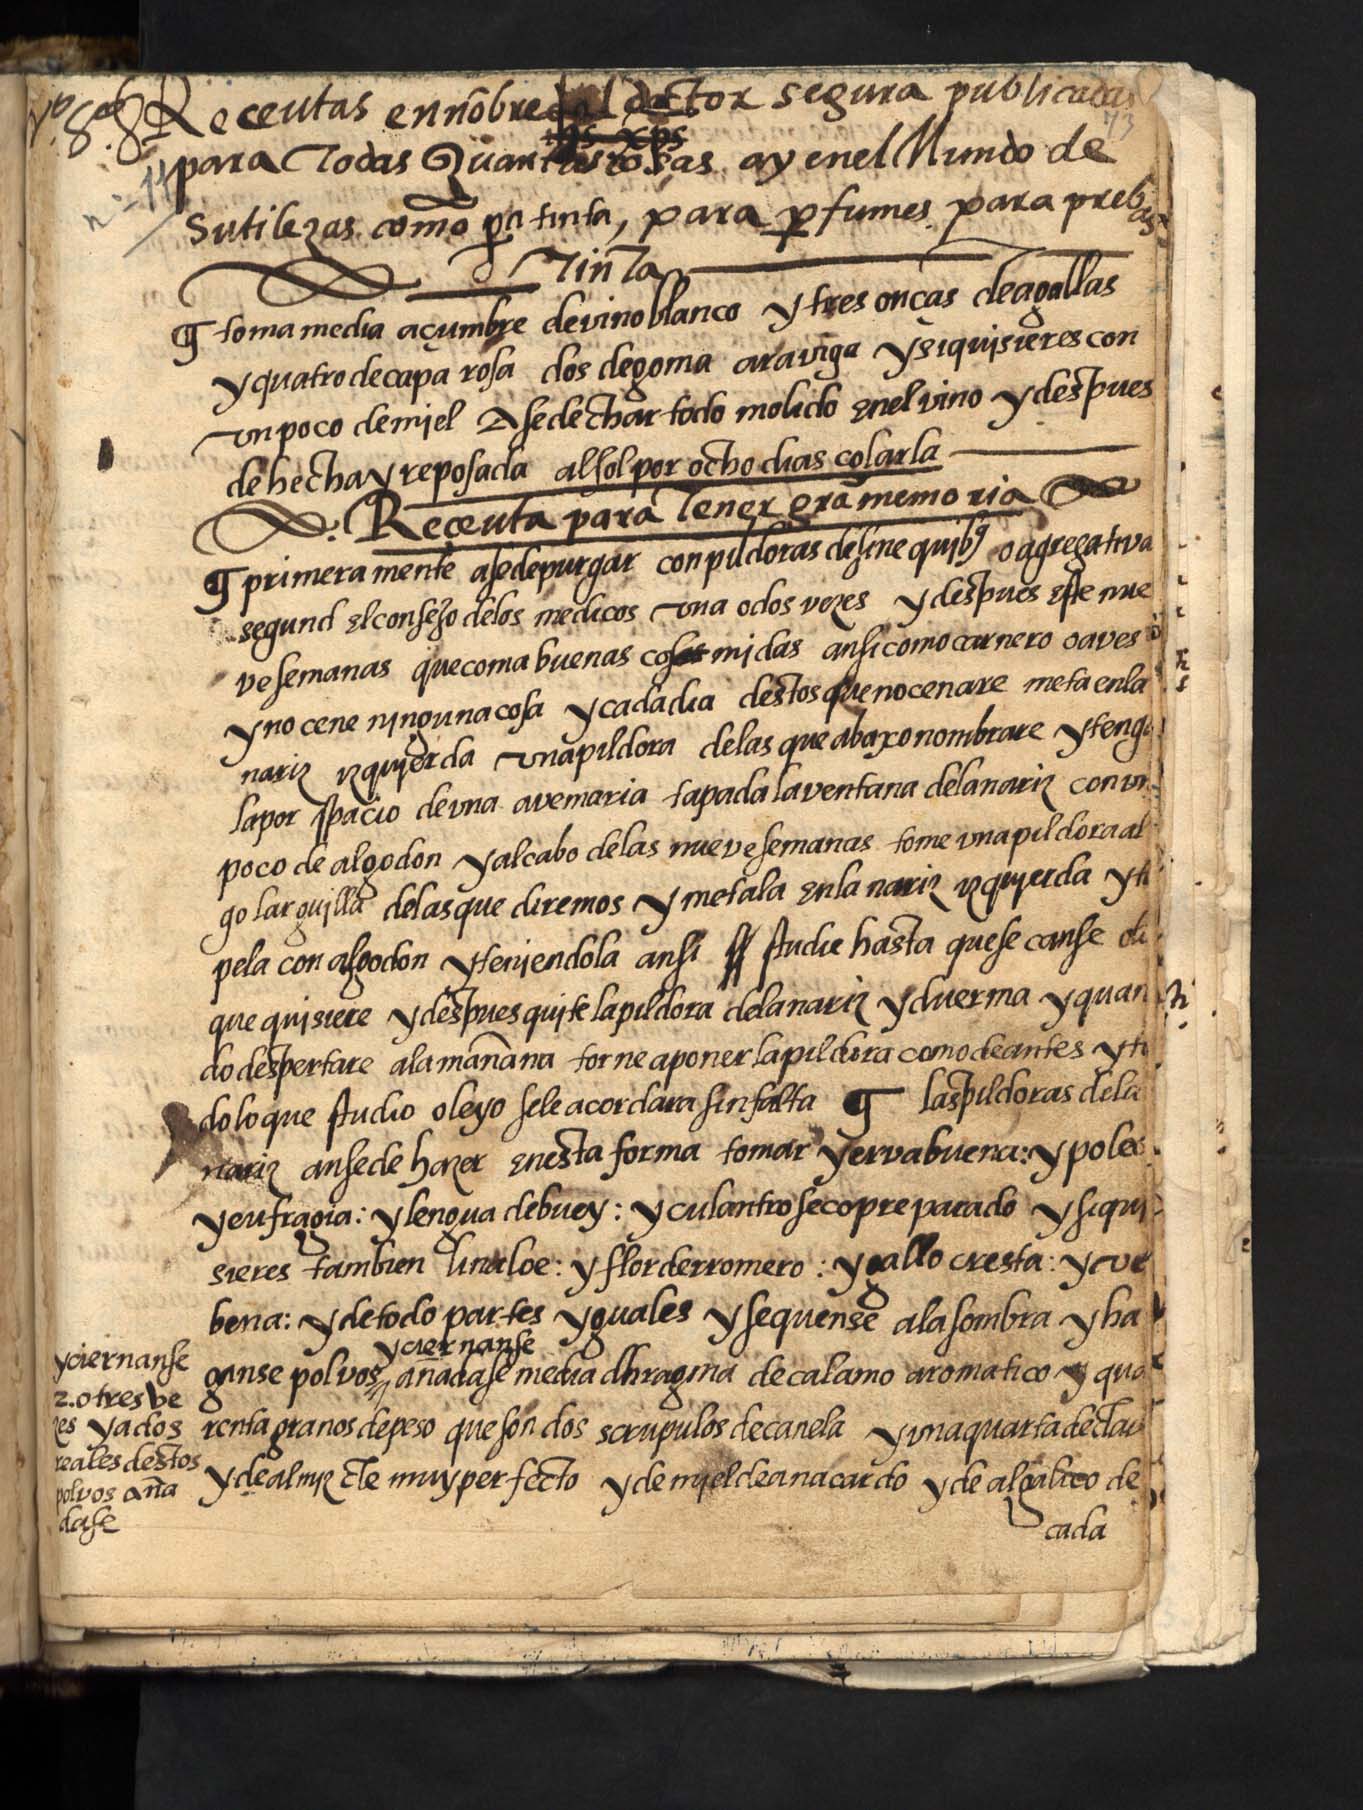 Receutas en nōbre del doctor segura publicadas
73
jhs xps
para Todas Quantas cosas ay en el Mundo de
sutilezas como pa tinta, para pfumes para preb
Tinta
¶ toma media açumbre de vino blanco y tres onças de agallas
y quatro de capa rosa dos de goma araviga y si quisieres con
un poco de miel Ase de echar todo molido en el vino y despues
de hecha y reposada al sol por ocho dias colarla
Reçeuta para Tener grā memoria
¶ primeramente ase de purgar con pildoras de sine quibꝰ o agregativa
segund el consejo de los medicos una o dos vezes y despues este nue
ve semanas que coma buenas comidas ansi como carnero o aves
y no cene ninguna cosa y cada dia destos que no cenare meta en la
nariz yzquierda una pildora de las que abaxo nombrare y tenga
la por spacio de una avemaria tapada la ventana de la nariz con un
poco de algodon y al cabo de las nueve semanas tome una pildora al
go larguilla de las que diremos y metala en la nariz yzquierda y ta
pela con algodon y teniendola ansi studie hasta que se canse o lo
que quisiere y despues quite la pildora de la nariz y duerma y quan
do despertare a la mañana torne a poner la pildora como de antes y to
do lo que studio o leyo se le acordara sin falta ¶ las pildoras de la
nariz anse de hazer en esta forma tomar yervabuena: y poleo
y eufragia: y lengua de buey: y culantro seco preparado y si qui
sieres tambien linaloe: y flor de rromero: y gallocresta: y ver
bena: y de todo partes yguales y sequense a la sombra y ha
y ciernanse
ganse polvos añadase media dhragma de calamo aromatico y qua
renta granos de peso que son dos scrupulos de canela y una quarta de clav
y de almizcle muy perfecto y de miel de anacardo y de algalico de
cada
y ciernanse
2. o tres ve
zes y a dos
reales destos
polvos aña
dase